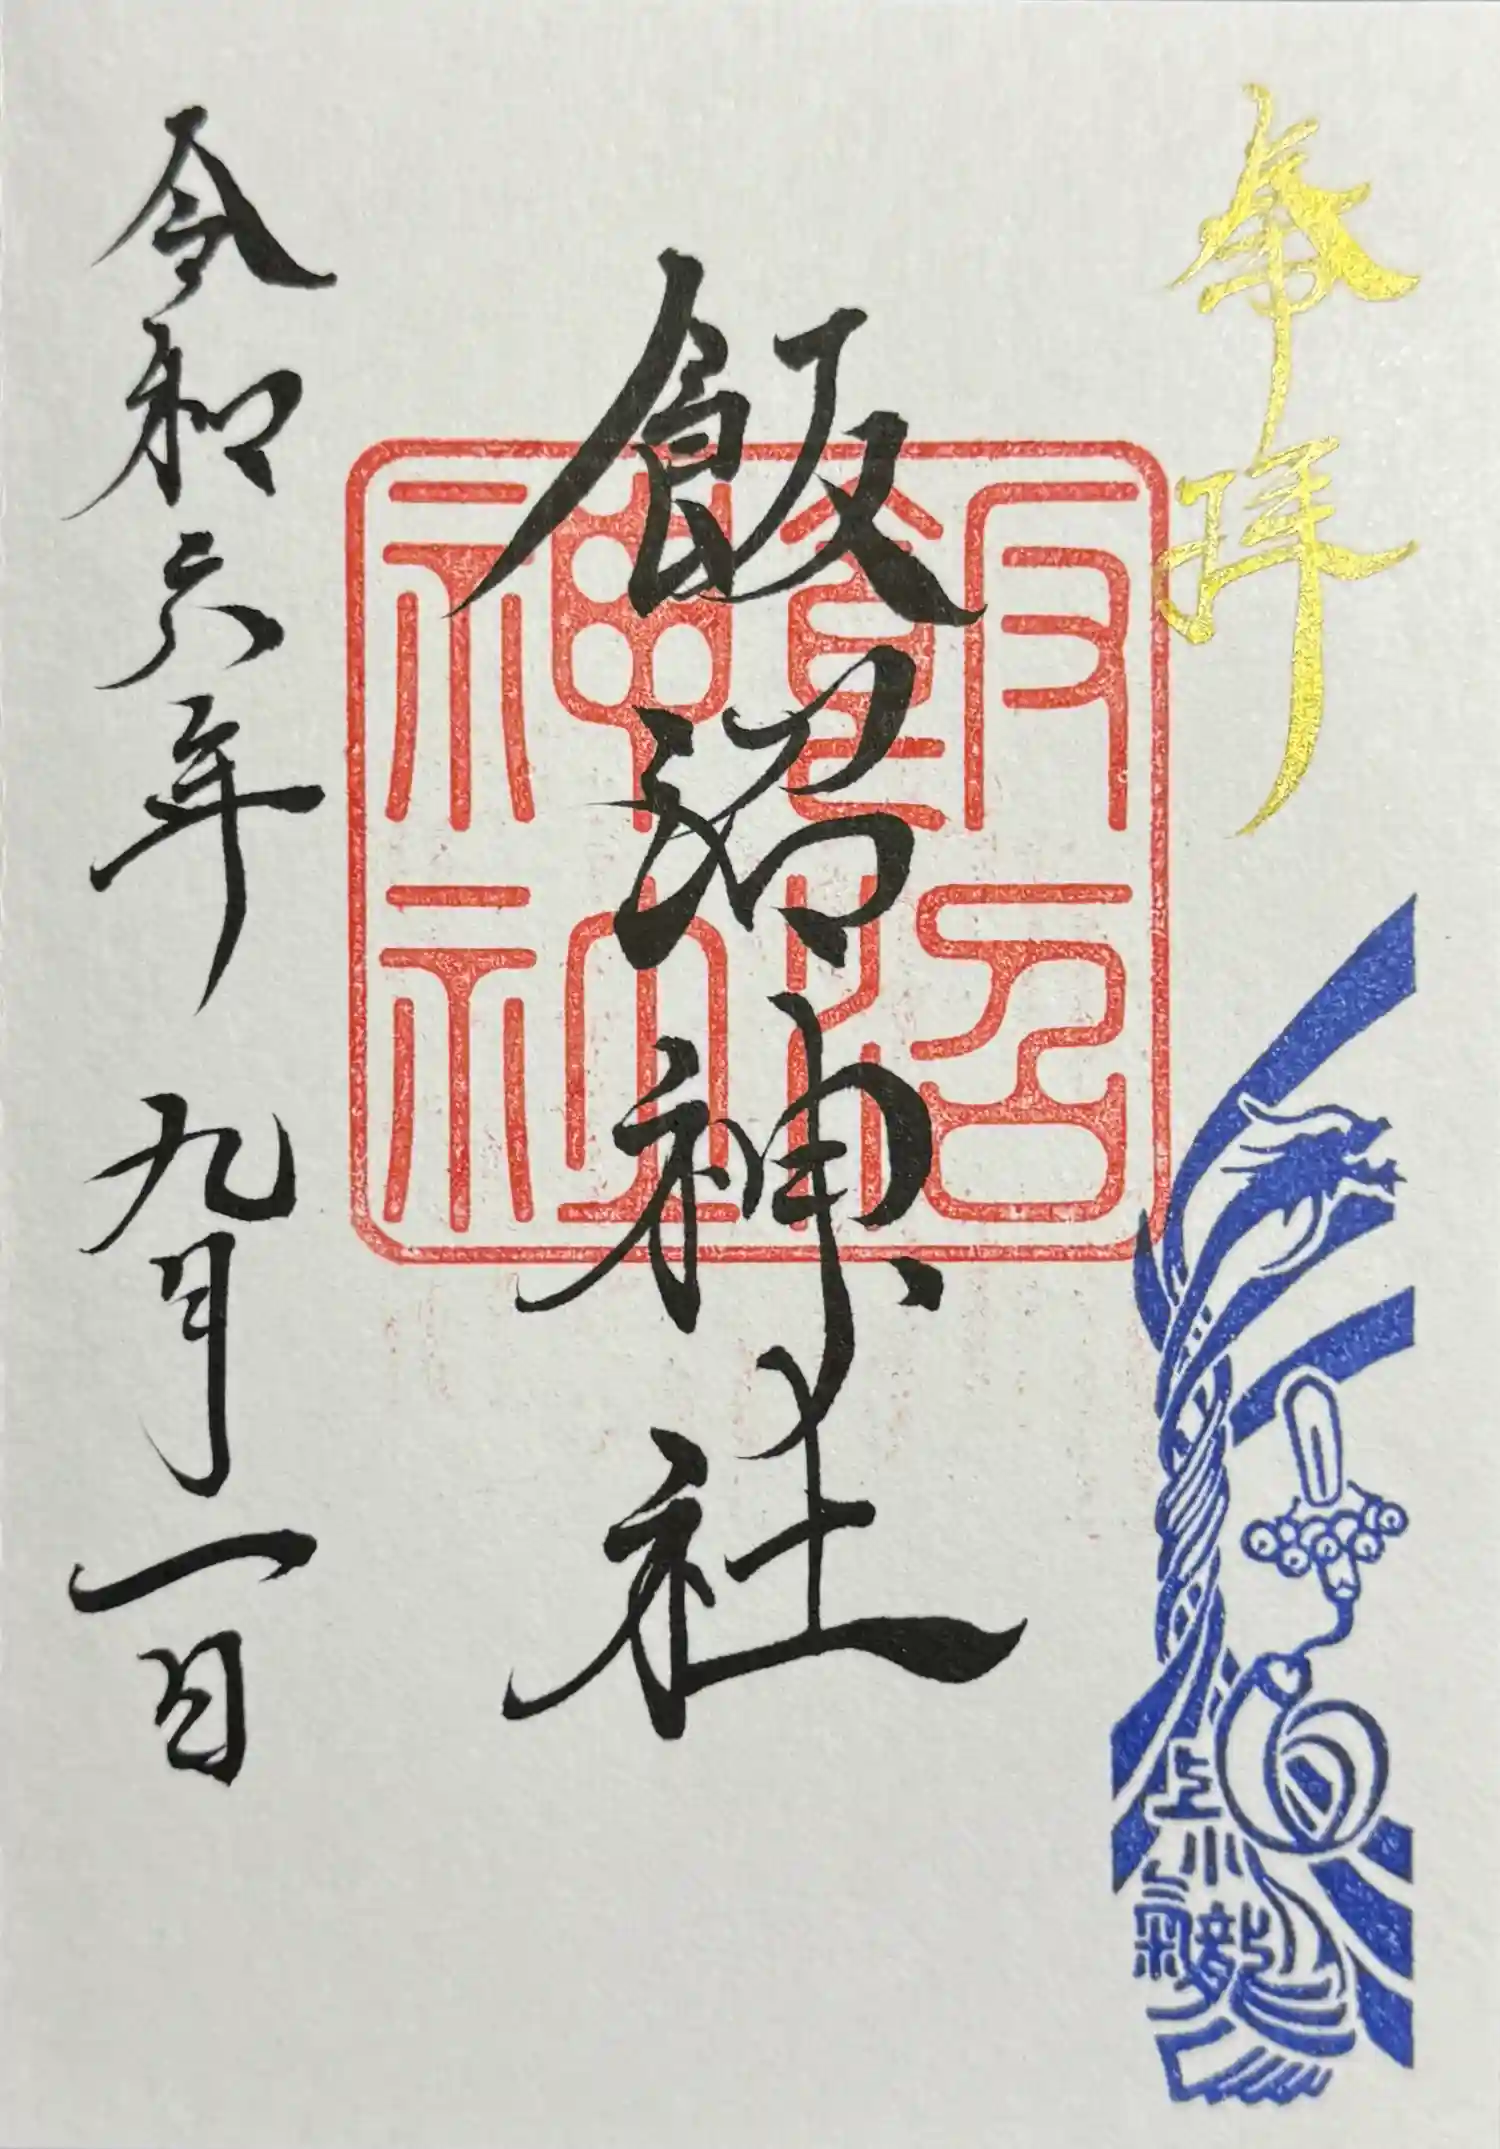 奉拝
飯沼神社
飯沼神社
令和六年 九月一日